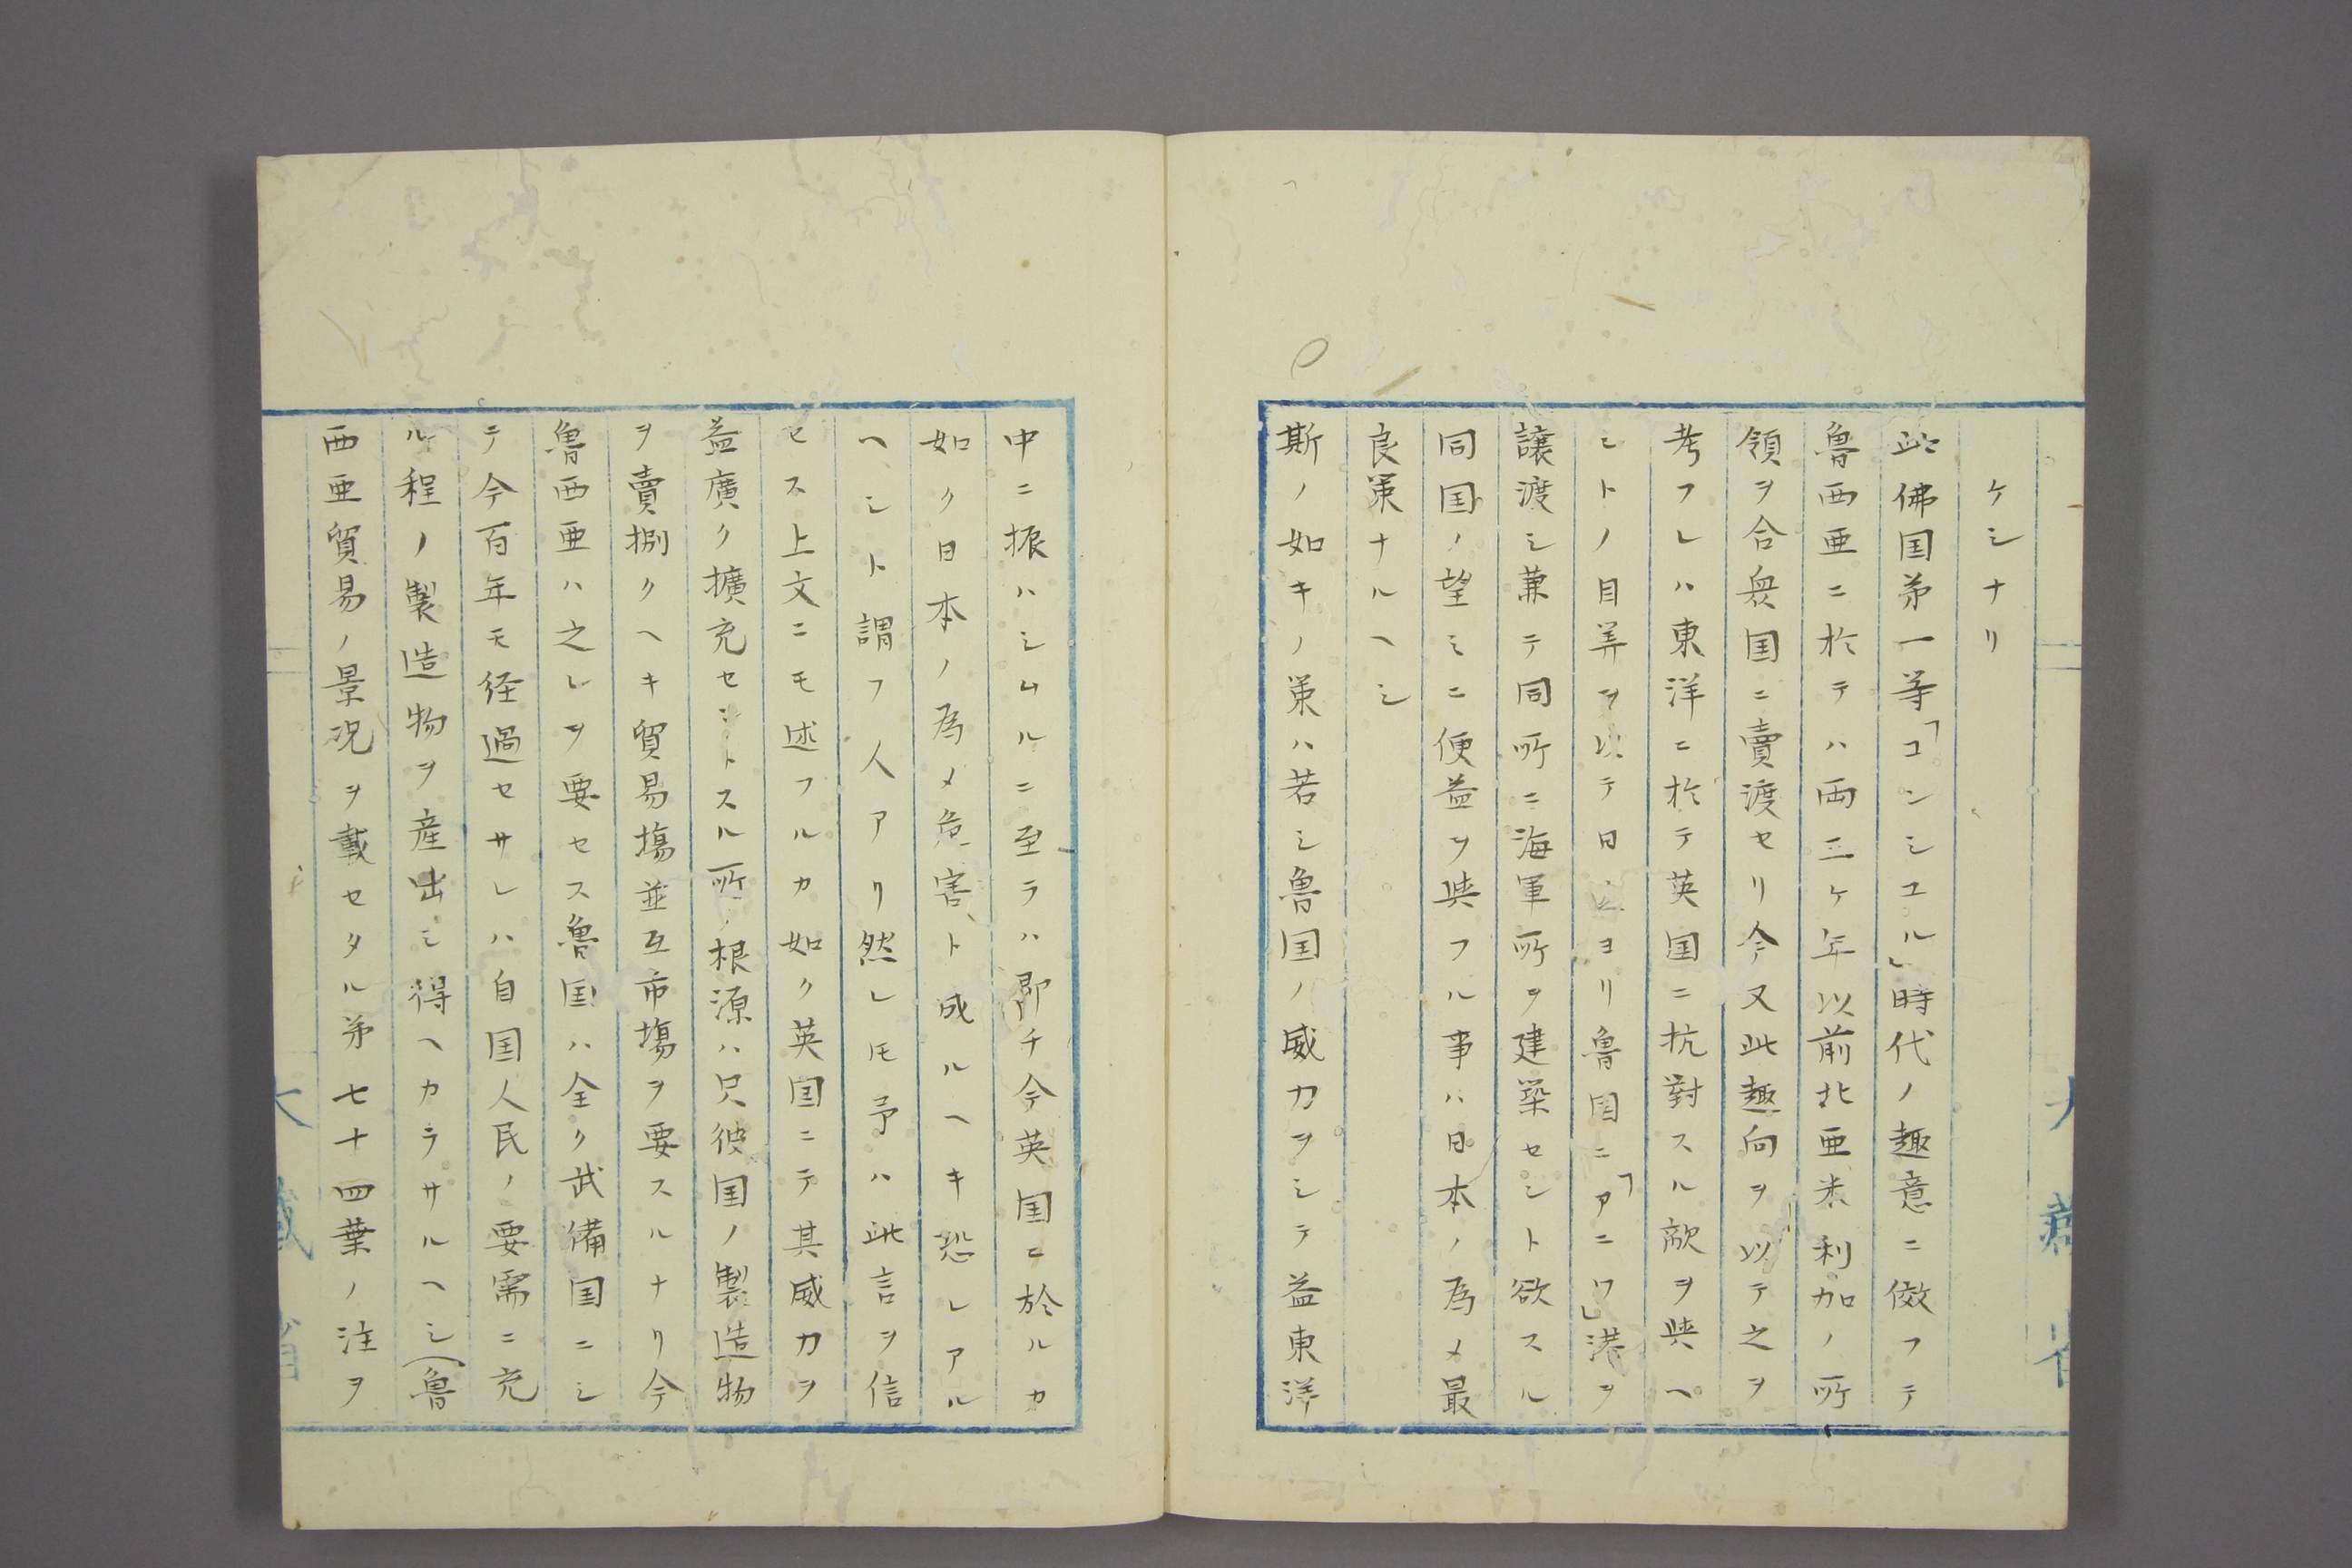 ケシナリ
此佛国苐一等「コンシユル」時代ノ趣意ニ倣フテ
魯西亜ニ於テハ両三ヶ年以前北亜米利加ノ所
領ヲ合衆国ニ賣渡セリ今又此趣向ヲ以テ之ヲ
考フレハ東洋ニ於テ英国ニ抗對スル敵ヲ與ヘ
シトノ目算ヲ以テ日本ヨリ魯国ニ「アニワ」港ヲ
譲渡シ兼テ同所ニ海軍所ヲ建築セシト欲スル
同国ノ望ミニ便益ヲ與フル事ハ日本ノ為メ最
良策ナルヘシ
斯ノ如キノ策ハ若シ魯国ノ威力ヲシテ益東洋
中ニ振ハシムルニ至ラハ即チ今英国ニ於ルカ
如ク日本ノ為メ危害ト成ルヘキ恐レアル
ヘシト謂フ人アリ然レ𪜈予ハ此言ヲ信
セス上文ニモ述フルカ如ク英国ニテ其威力ヲ
益廣ク擴充セントスル所ノ根源ハ只彼国ノ製造物
ヲ賣捌クヘキ貿易塲並互市塲ヲ要スルナリ今
魯西亜ハ之レヲ要セス魯国ハ全ク武備国ニシ
テ今百年モ径過セサレハ自国人民ノ要需ニ充
ル程ノ製造物ヲ産出シ得ヘカラサルヘシ(魯
西亜貿易ノ景况ヲ載セタル苐七十四葉ノ注ヲ
大藏省